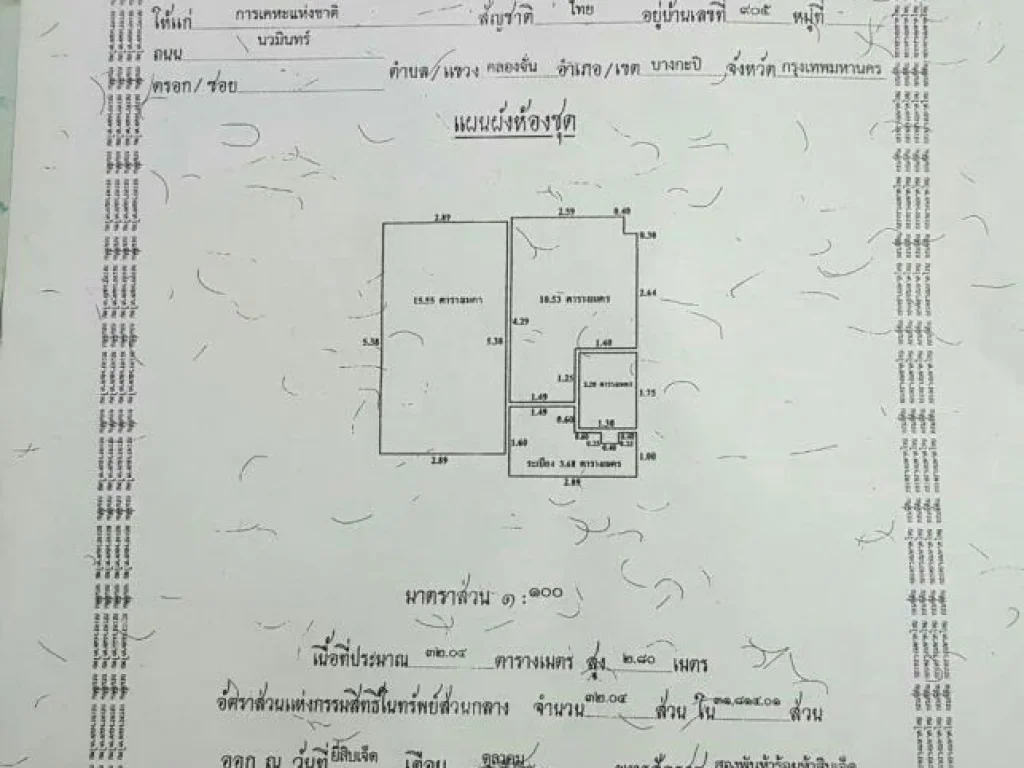 ให้แก่ การเคหะแห่งชาติ สัญชาติ ไทย อยู่บ้านเลขที่ ๙๐๕ หมู่ที่
ถนน นวมินทร์
ตรอก/ซอย ตำบล/แขวง คลองจั่น อำเภอ/เขต บางกะปิ จังหวัด กรุงเทพมหานคร
แผนผังห้องชุด
2.89 2.59 0.40
0.30
15.55 ตารางเมตร 10.53 ตารางเมตร 2.64
4.29
5.38 5.38 1.40
1.25 ตารางเมตร 1.75
1.49
1.49 0.60 1.30
0.60 0.40
0.25 0.40 0.25
1.60 1.00
2.89 ระเบียง 3.68 ตารางเมตร
2.89
มาตราส่วน ๑ : ๑๐๐
เนื้อที่ประมาณ ๓๒.๐๔ ตารางเมตร สูง ๒.๘๐ เมตร
อัตราส่วนแห่งกรรมสิทธิ์ในทรัพย์ส่วนกลาง จำนวน ๓๒.๐๔ ส่วน ใน ๓๑,๘๑๔.๐๑ ส่วน
ออก ณ วันที่ ยี่สิบเจ็ด เดือน ตุลาคม พุทธศักราช สองพันห้าร้อยห้าสิบเจ็ด